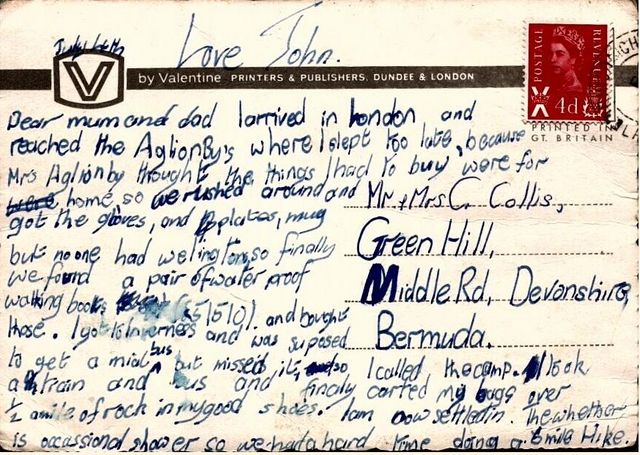 July 14th
Love John.
V
by Valentine PRINTERS & PUBLISHERS, DUNDEE & LONDON
POSTAGE
REVENUE
4d
PRINTED IN
GT. BRITAIN
Dear mum and dad I arrived in London and
reached the Aglionby's where I slept too late, because
Mrs Aglionby thought the things I had to buy were for
were home, so we rushed around and
got the gloves, and plates, mug
but no one had welington, so finally
we found a pair of water proof
walking boots (£5/5/0). and bought
those. I got to Inverness and was suposed
to get a mial bus but missed it, so I called the camp. I took
a train and bus and finaly carted my bags over
1/2 a mile of rock in my good shoes. I am now settled in. The whether
is occassional shower so we had a hard time doing a 8 mile Hike.
Mr, + Mrs C. Collis,
Green Hill,
Middle Rd, Devonshire,
Bermuda.